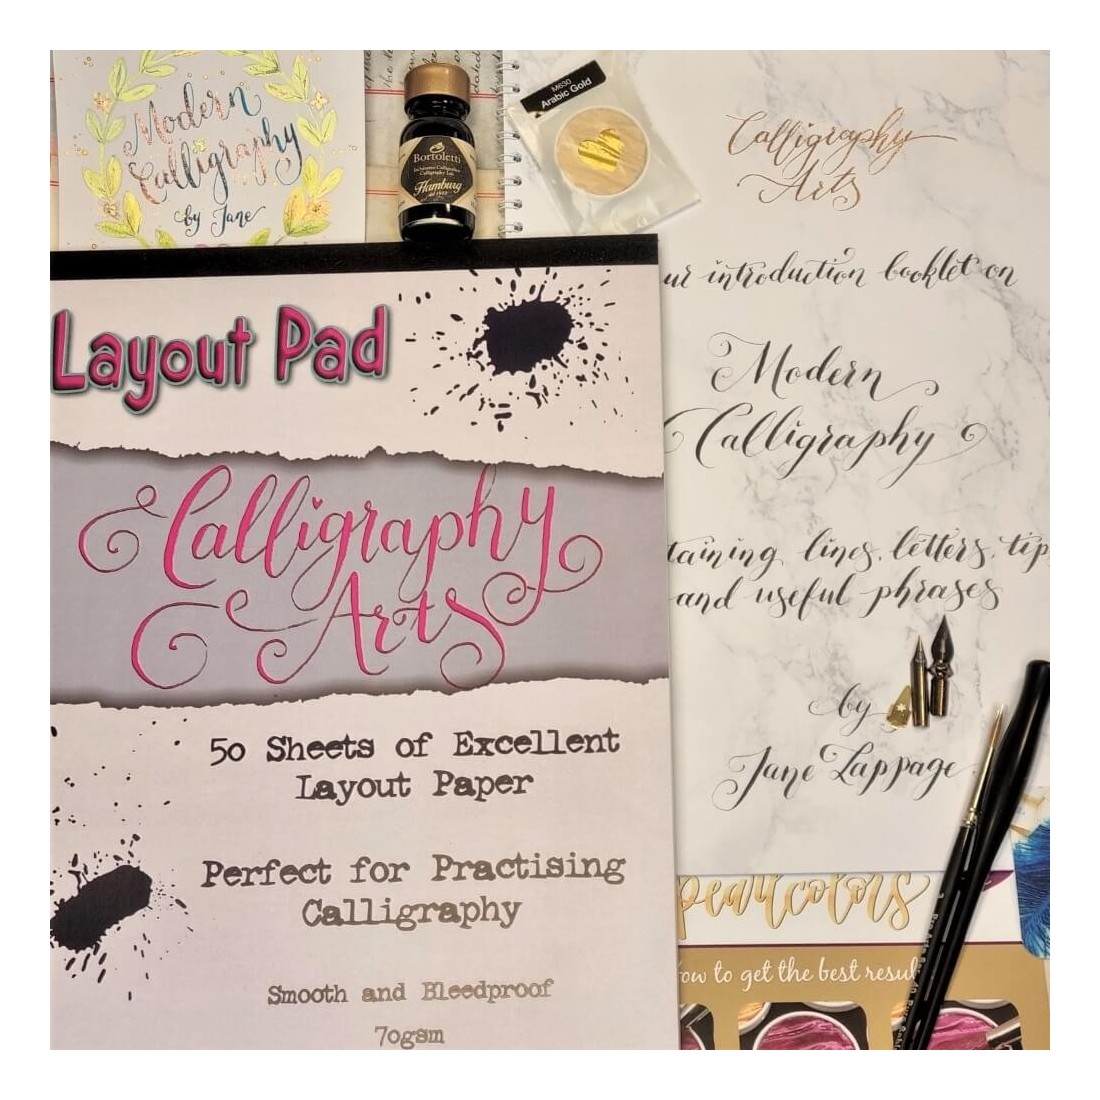 Modern
Calligraphy
by Jane
Bortoletti
Hamburg
M630
Arabic Gold
Calligraphy
Arts
ur introduction booklet on
Modern
Calligraphy
taining lines, letters, tip
and useful phrases
by
Jane Lappage
Layout Pad
Calligraphy
Arts
50 Sheets of Excellent
Layout Paper
Perfect for Practising
Calligraphy
Smooth and Bleedproof
70gsm
pearlcolors
ow to get the best resul